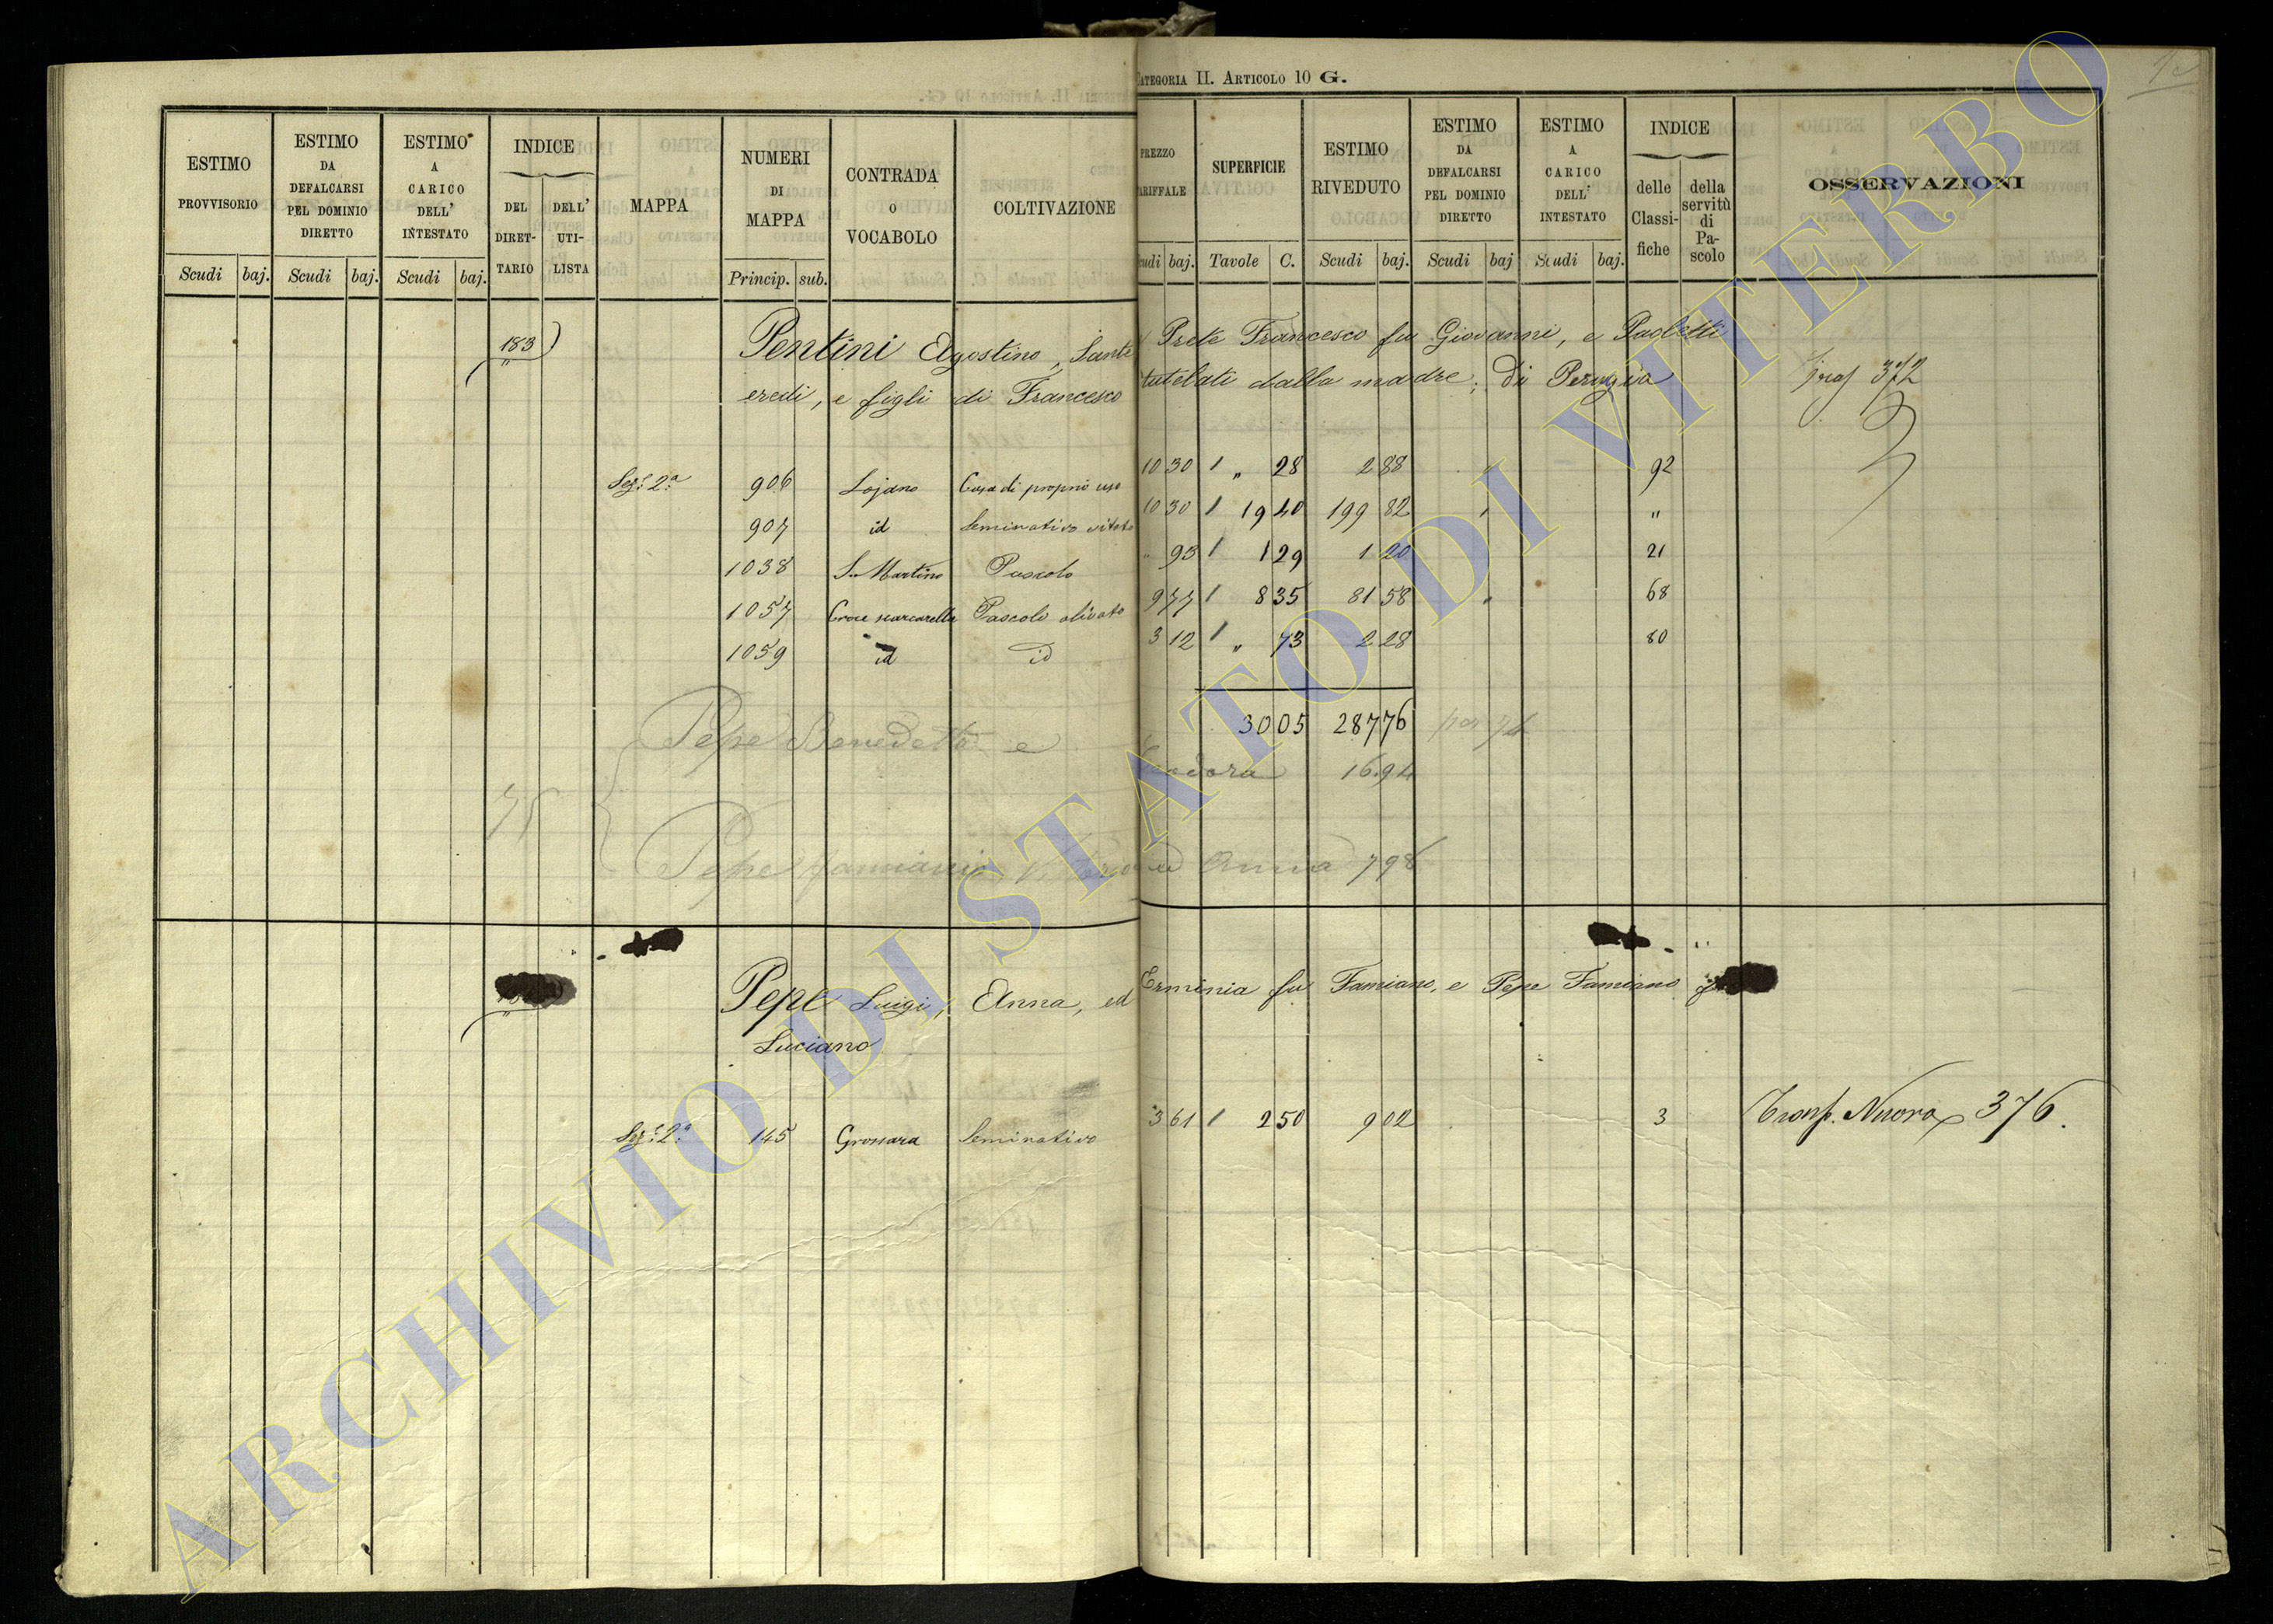 CATEGORIA II. ARTICOLO 10 G.
ESTIMO PROVVISORIO
ESTIMO DA DEFALCARSI PEL DOMINIO DIRETTO
ESTIMO A CARICO DELL' INTESTATO
INDICE
DEL DIRET-TARIO
DELL' UTI-LISTA
MAPPA
NUMERI DI MAPPA
CONTRADA O VOCABOLO
COLTIVAZIONE
PREZZO TARIFFALE
SUPERFICIE
ESTIMO RIVEDUTO
ESTIMO DA DEFALCARSI PEL DOMINIO DIRETTO
ESTIMO A CARICO DELL' INTESTATO
INDICE
delle Classi-fiche
della servitù di Pa-scolo
OSSERVAZIONI
Scudi baj. Scudi baj. Scudi baj. Princip. sub. Scudi baj. Tavole C. Scudi baj. Scudi baj Scudi baj.
183 Pentini Agostino, Sante, Prete Francesco fu Giovanni, e Paoletti
eredi, e figli di Francesco tutelati dalla madre; di Perugia 372
Sez.e 2.a 906 Lojano Casa di proprio uso 10 30 1 " 28 2 88 92
907 id Seminativo vitato 10 30 1 19 40 199 82 "
1038 S. Martino Pascolo " 93 1 1 29 1 20 21
1057 Croce scarcarella Pascolo olivato 9 77 1 8 35 81 58 68
1059 id id 3 12 1 " 73 2 28 80
30 05 287 76
Pepe Benedetto e
Teodora 16.94
75
Pepe Famiano Anna 798
Pepe Luigi, Anna, ed Erminia fu Famiano, e Pepe Famiano
Luciano
Sez.e 2.a 145 Grossara Seminativo 3 61 1 2 50 9 02 3 Trasp. Nuora 376.
ARCHIVIO DI STATO DI VITERBO